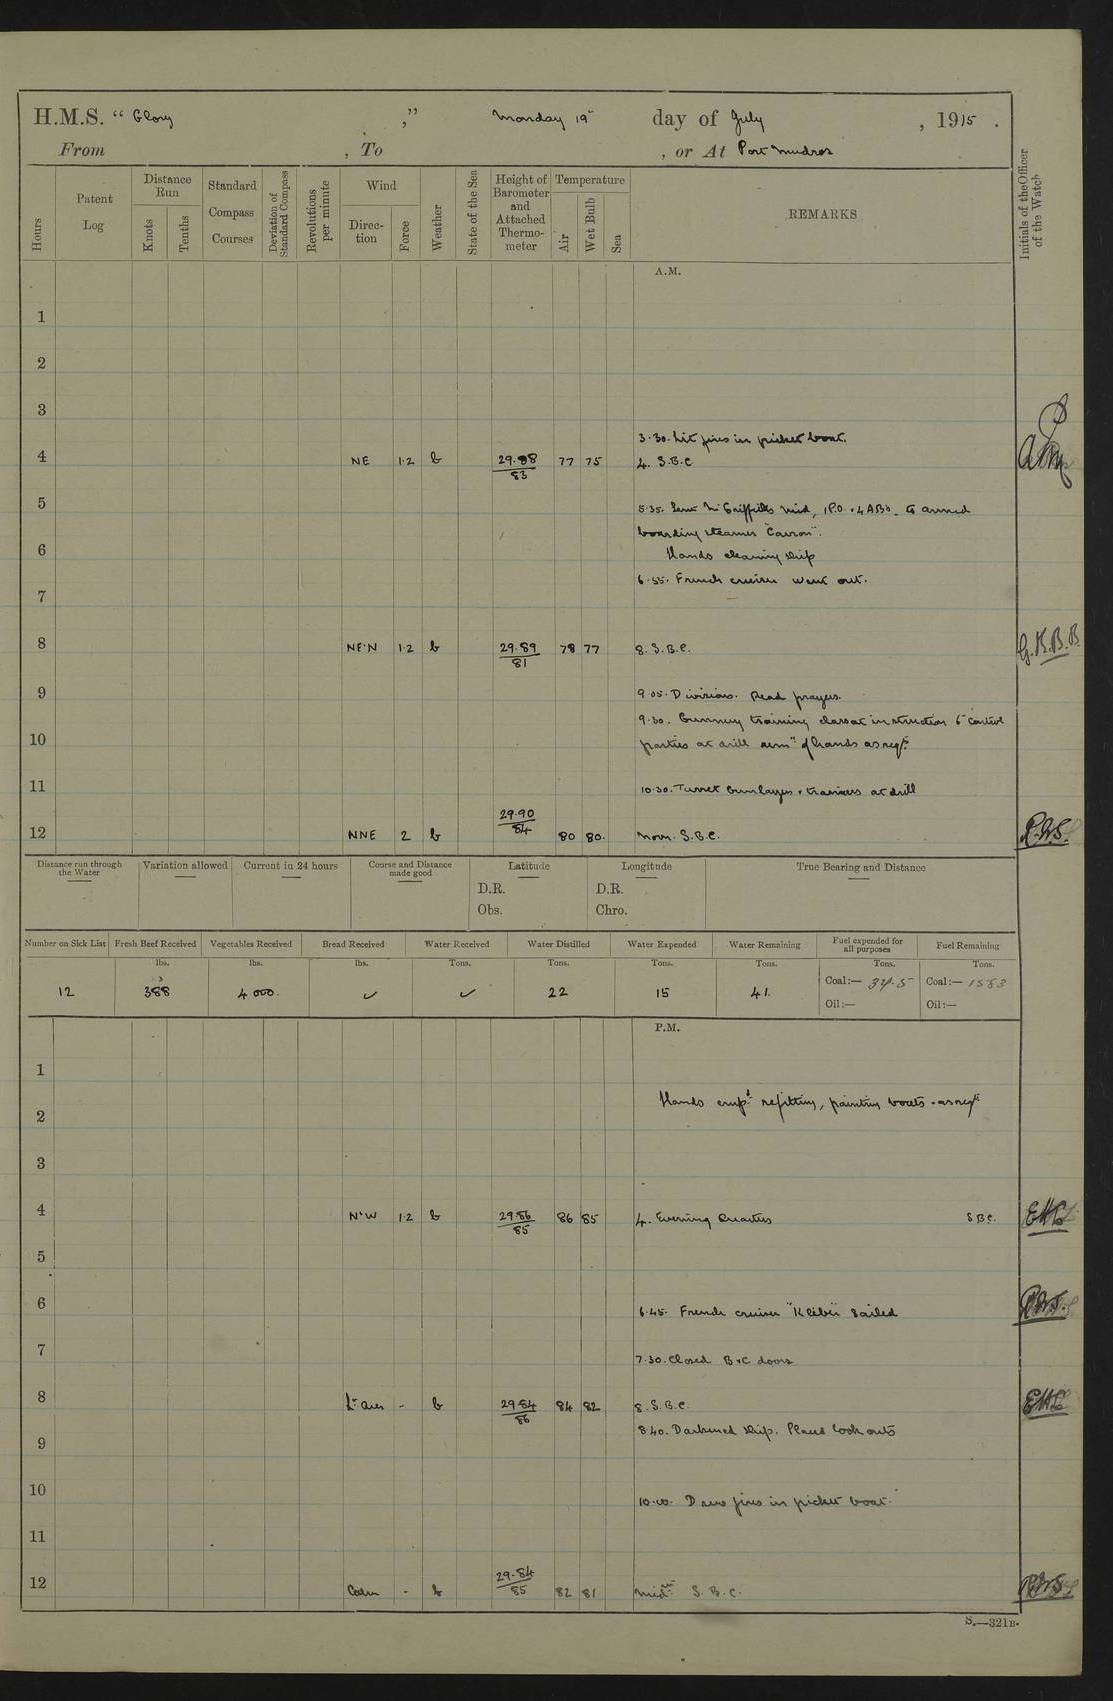 H.M.S. " Glory ," Monday 19th day of July , 1915 .
From , To , or At Port Mudros
Hours
Patent Log
Distance Run
Knots
Tenths
Standard Compass Courses
Deviation of Standard Compass
Revolutions per minute
Wind
Direction
Force
Weather
State of the Sea
Height of Barometer and Attached Thermometer
Temperature
Air
Wet Bulb
Sea
REMARKS
Initials of the Officer of the Watch
A.M.
1
2
3
3.30. Lit fires in picket boat.
4 NE 1.2 b 29.88 83 77 75 4. S.B.C
5 5.35. Sent Mr Griffiths Mid, 1 P.O. + 4 ABs. to armed
boarding steamer "Carron".
6 Hands cleaning ship
6.55. French cruiser went out.
7
8 NE'N 1.2 b 29.89 81 78 77 8. S.B.C. G.K.B.B.
9 9.05. Divisions. Read prayers.
9.30. Gunnery training class at instruction 6" Control
10 parties at drill rem'' of hands as reqd.
11 10.30. Turret Gunlayers + trainers at drill
12 NNE 2 b 29.90 84 80 80. Noon. S.B.C.
Distance run through the Water
Variation allowed
Current in 24 hours
Course and Distance made good
Latitude
D.R.
Obs.
Longitude
D.R.
Chro.
True Bearing and Distance
Number on Sick List
Fresh Beef Received
Vegetables Received
Bread Received
Water Received
Water Distilled
Water Expended
Water Remaining
Fuel expended for all purposes
Fuel Remaining
lbs. lbs. lbs. Tons. Tons. Tons. Tons. Tons. Tons.
12 388 4000. ✓ ✓ 22 15 41. Coal:— 34.5 Coal:— 1583
Oil:— Oil:—
P.M.
1
Hands empd refitting, painting boats + as reqd
2
3
4 N'W 1.2 b 29.86 85 86 85 4. Evening Quarters S.B.C.
5
6 6.45. French cruiser "Kleber" Sailed
7 7.30. Closed B+C doors
8 Lt airs - b 29.84 86 84 82 8. S.B.C.
8.40. Darkened ship. Placed look outs
9
10 10.00. Drew fires in picket boat.
11
12 Calm - b 29.84 85 82 81 Midt S.B.C.
S.—321B.